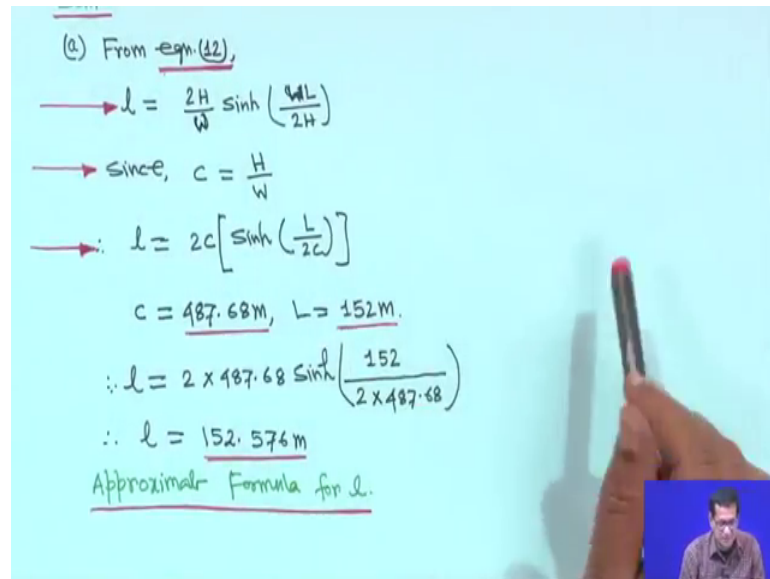 (a) From eqn.(12),
l = 2H/W sinh (WL/2H)
since, c = H/W
∴ l = 2c[sinh (L/2c)]
c = 487.68m, L = 152m.
∴ l = 2 x 487.68 sinh (152/2x487.68)
∴ l = 152.576m
Approximate Formula for l.